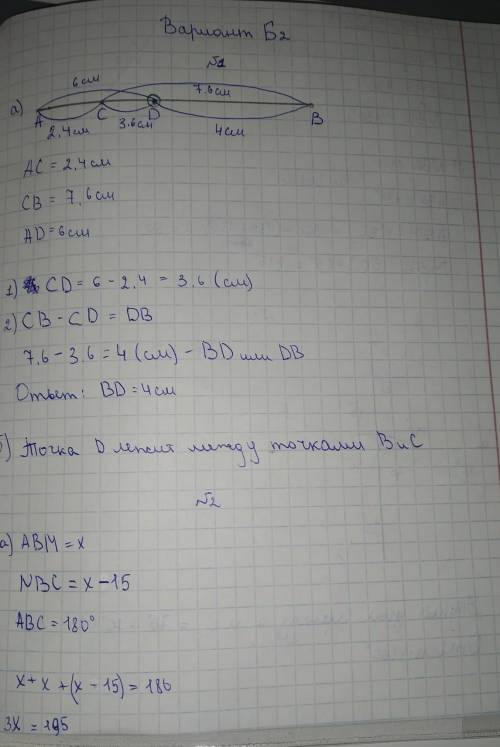 Вариант Б2
№1
6см
7.6см
а)
A C D B
2,4см 3.6см 4см
AC = 2,4см
CB = 7,6см
AD = 6см
1) CD = 6 - 2,4 = 3,6 (см)
2) CB - CD = DB
7.6 - 3.6 = 4 (см) - BD или DB
Ответ: BD = 4см
б) Точка D лежит между точками B и C
№2
а) ABM = x
NBC = x - 15
ABC = 180°
x + x + (x - 15) = 180
3x = 195